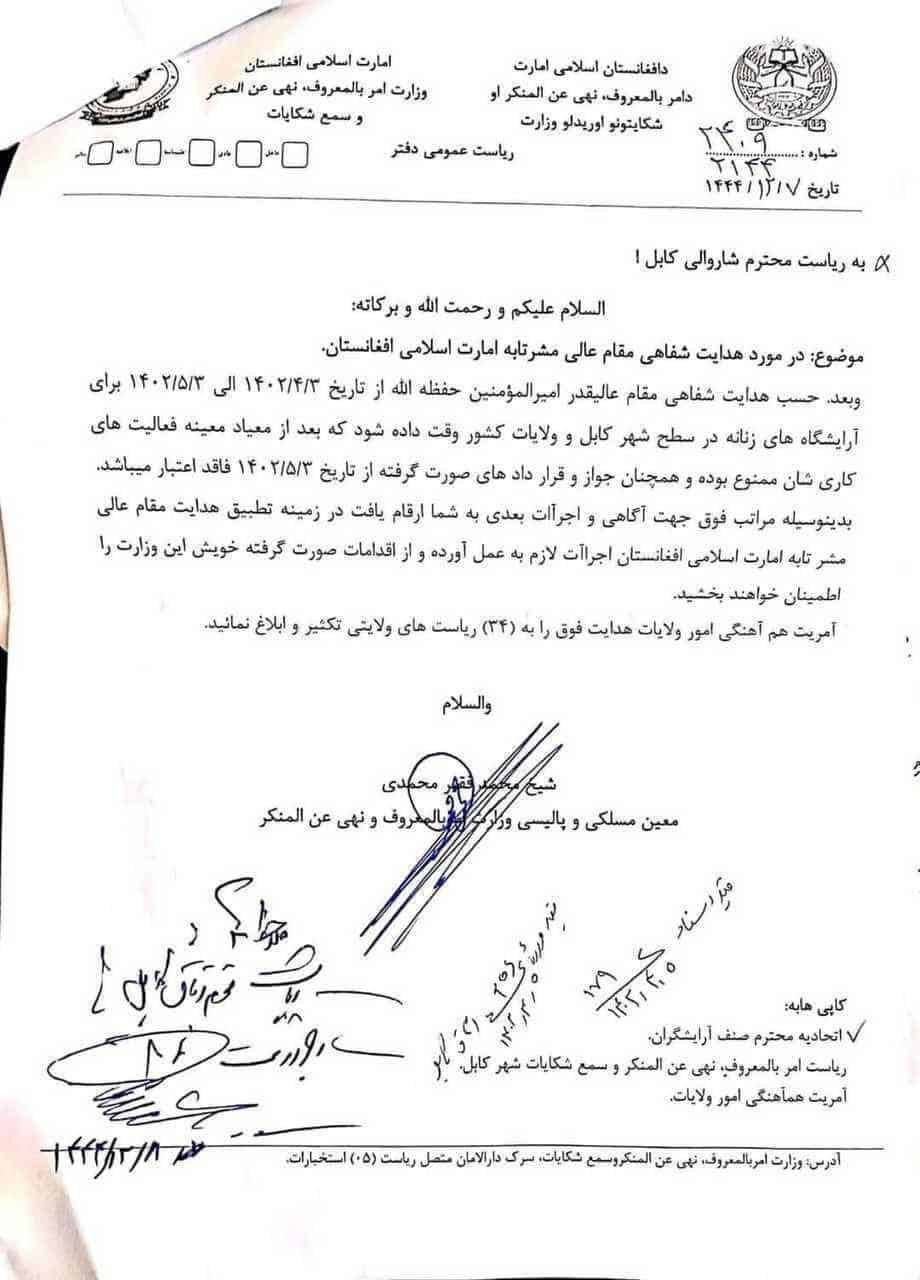 دافغانستان اسلامی امارت
دامر بالمعروف، نهی عن المنکر او
شکایتونو اوریدلو وزارت
امارت اسلامی افغانستان
وزارت امر بالمعروف، نهی عن المنکر
و سمع شکایات
ریاست عمومی دفتر
شماره : ۲۴۰۹
۲۱۴۴
تاریخ ۱۴۴۴/۱۲/۷
به ریاست محترم شاروالی کابل !
السلام علیکم و رحمت الله و برکاته:
موضوع: در مورد هدایت شفاهی مقام عالی مشرتابه امارت اسلامی افغانستان.
وبعد. حسب هدایت شفاهی مقام عالیقدر امیرالمؤمنین حفظه الله از تاریخ ۱۴۰۲/۴/۳ الی ۱۴۰۲/۵/۳ برای
آرایشگاه های زنانه در سطح شهر کابل و ولایات کشور وقت داده شود که بعد از معیاد معینه فعالیت های
کاری شان ممنوع بوده و همچنان جواز و قرار داد های صورت گرفته از تاریخ ۱۴۰۲/۵/۳ فاقد اعتبار میباشد.
بدینوسیله مراتب فوق جهت آگاهی و اجراآت بعدی به شما ارقام یافت در زمینه تطبیق هدایت مقام عالی
مشر تابه امارت اسلامی افغانستان اجراآت لازم به عمل آورده و از اقدامات صورت گرفته خویش این وزارت را
اطمینان خواهند بخشید.
آمریت هم آهنگی امور ولایات هدایت فوق را به (۳۴) ریاست های ولایتی تکثیر و ابلاغ نمائید.
والسلام
شیخ محمد فقیر محمدی
معین مسلکی و پالیسی وزارت امر بالمعروف و نهی عن المنکر
کاپی هابه:
اتحادیه محترم صنف آرایشگران.
ریاست امر بالمعروف، نهی عن المنکر و سمع شکایات شهر کابل.
آمریت همآهنگی امور ولایات.
۱۴۴۴/۱۲/۸
آدرس: وزارت امربالمعروف، نهی عن المنکروسمع شکایات، سرک دارالامان متصل ریاست (۰۵) استخبارات.